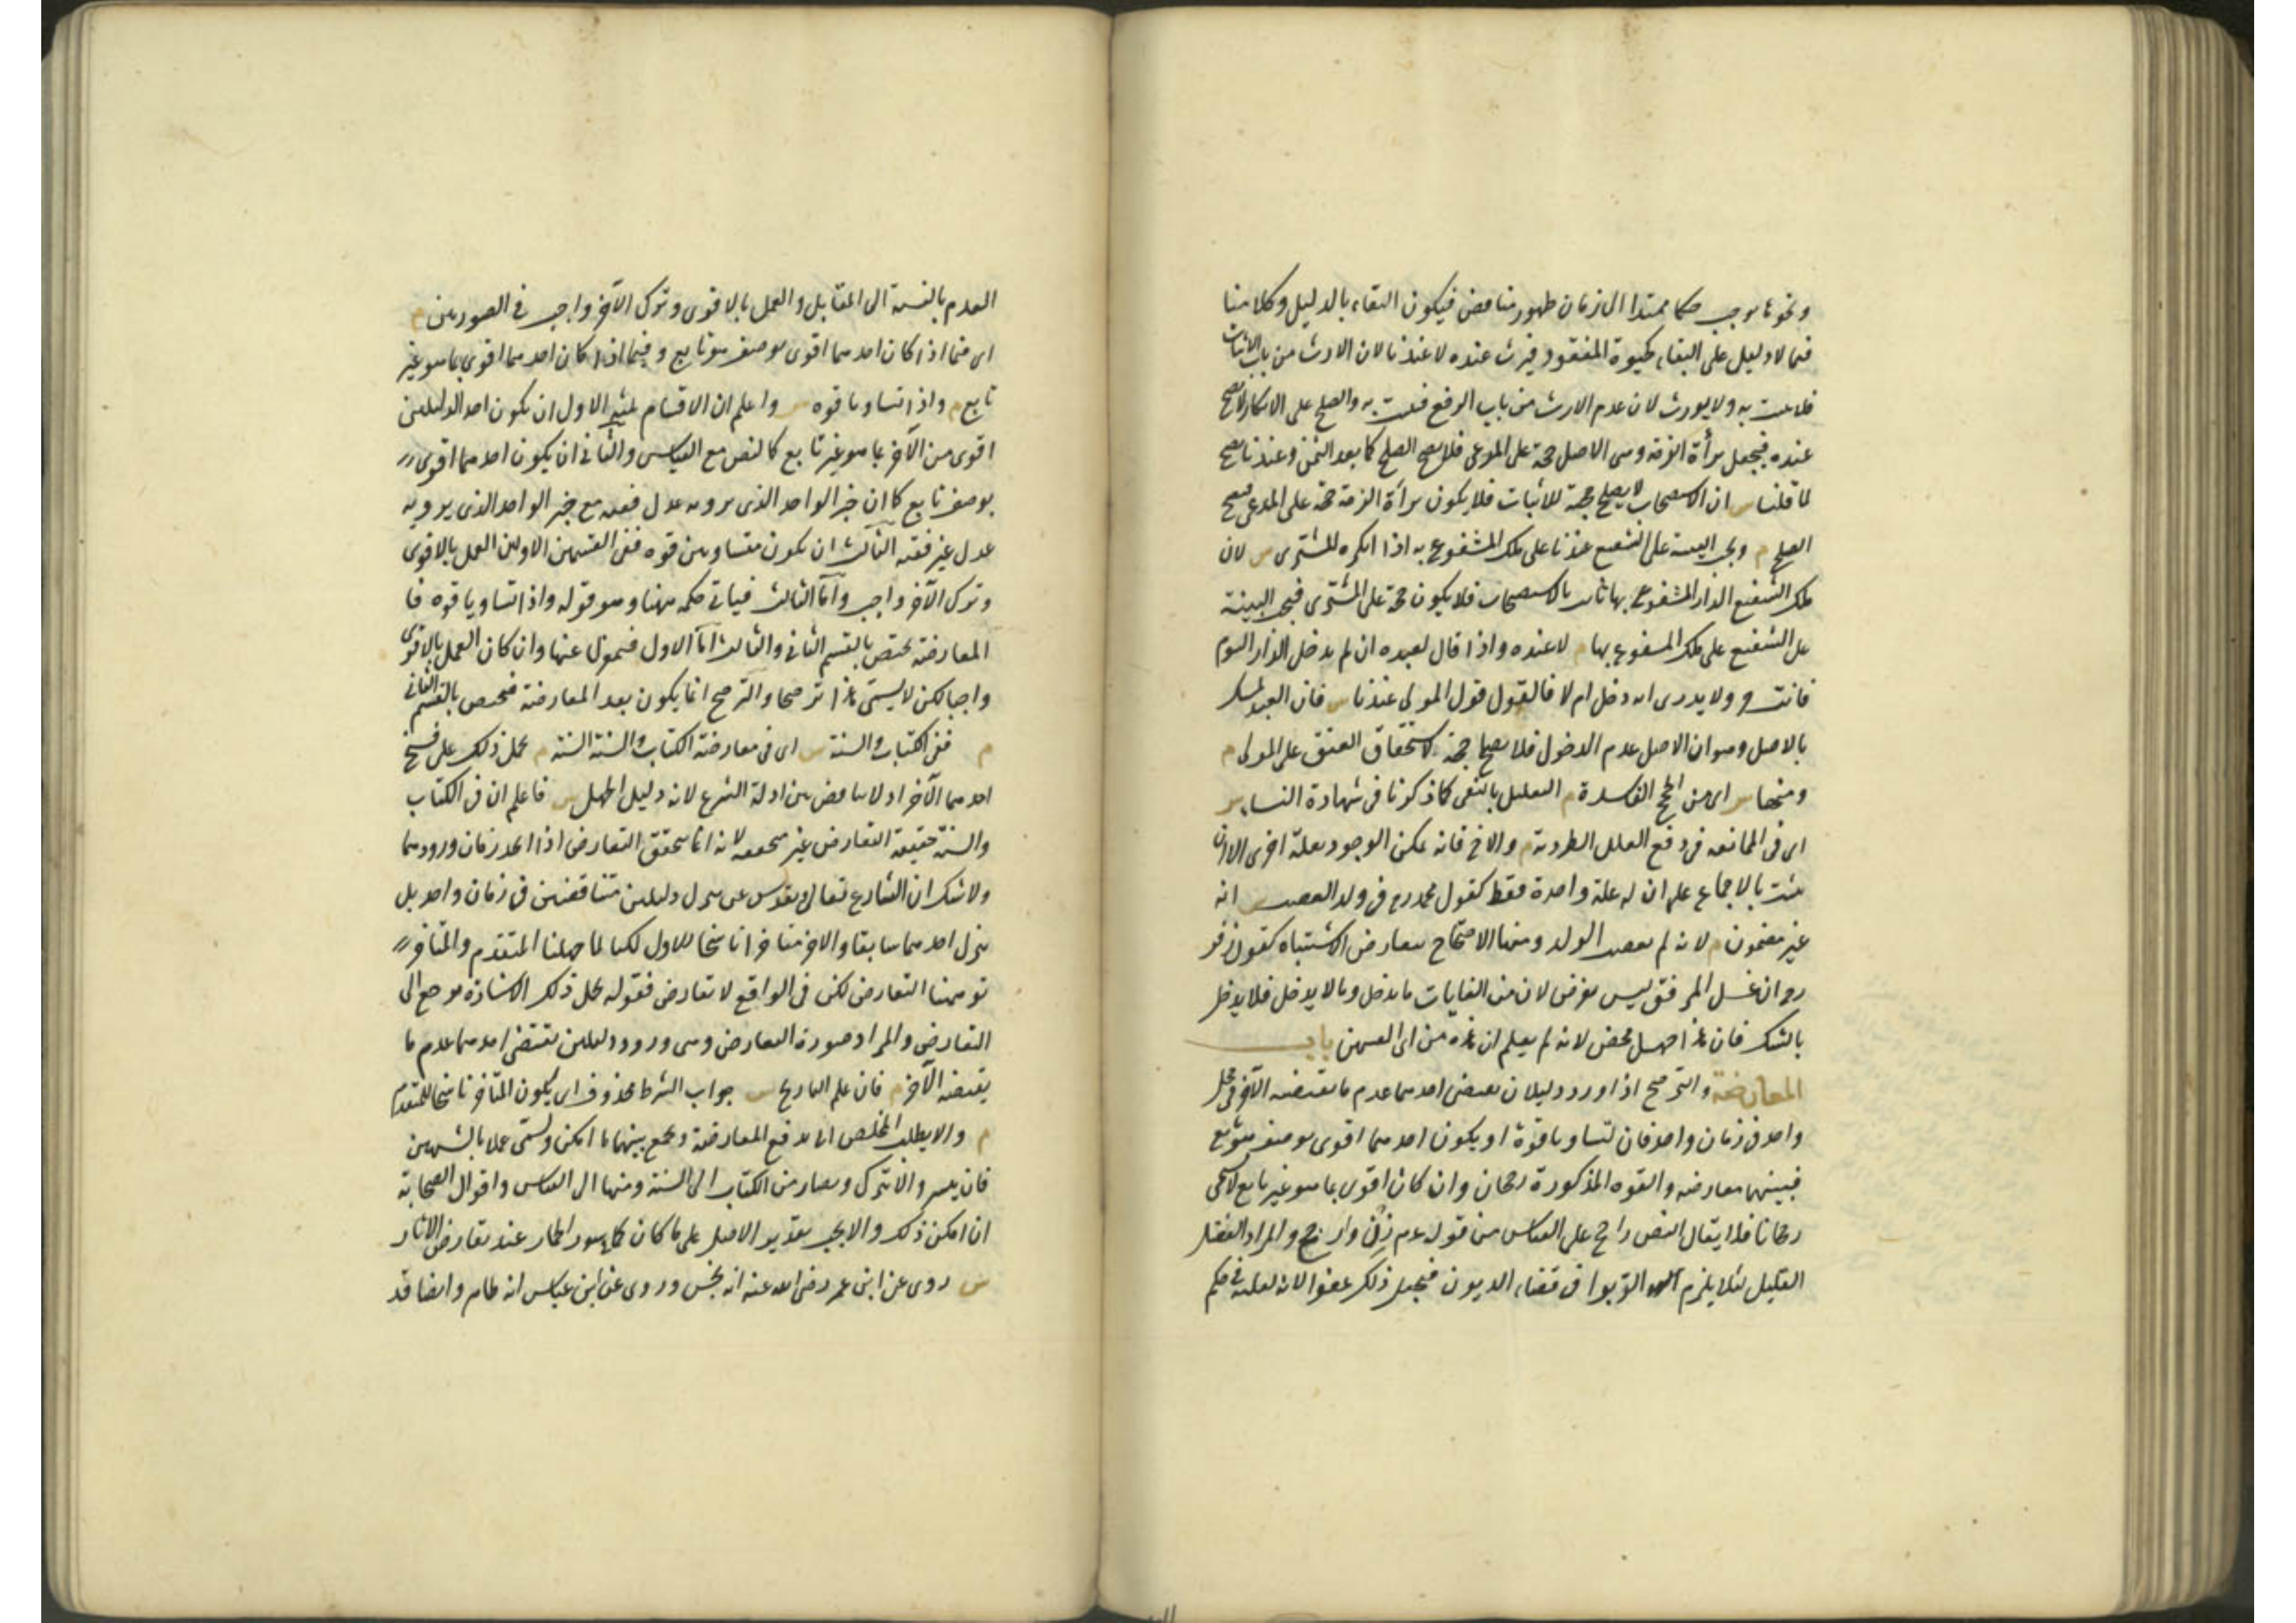 ونحوها يوجب حكما ممتدا الى زمان ظهور مناقض فيكون البقاء بالدليل وكلامنا
فيما لا دليل على البقاء كحيوة المفقود فيرث عنده لا عندنا لان الارث من باب الاثبات
فلا يثبت به ولا يورث لان عدم الارث من باب الدفع فيثبت به والصلح على الانكار لا يصح
عنده فيجعل برأة الذمة وهى الاصل حجة على المدعى فلا يصح الصلح كما بعد اليمين وعندنا يصح
لما قلنا س ان الاستصحاب لا يصلح حجة للاثبات فلا يكون برأة الذمة حجة على المدعى فيصح
الصلح م ويجب البينة على الشفيع عندنا على ملك المشفوع به اذا انكره المشترى س لان
ملك الشفيع الدار المشفوع بها ثابت بالاستصحاب فلا يكون حجة على المشترى فيجب البينة
على الشفيع على ملك المشفوع بها م لا عنده واذا قال لعبده ان لم تدخل الدار اليوم
فانت حر ولا يدرى انه دخل ام لا فالقول قول المولى عندنا س فان العبد تمسك
بالاصل وهو ان الاصل عدم الدخول فلا يصلح حجة لاستحقاق العتق على المولى م
ومنها س اى من الحجج الفاسدة م التعليل بالنفى كما ذكرنا فى شهادة النساء س
اى فى الممانعة فى دفع العلل الطردية م والاخ فانه يمكن الوجود بعلة اخرى الا ان
يثبت بالاجماع على ان له علة واحدة فقط كقول محمد رح فى ولد الغصب س انه
غير مضمون م لانه لم يغصب الولد ومنها الاحتجاج بتعارض الاشتباه كقول زفر
رح ان غسل المرفق ليس بفرض لان من الغايات ما يدخل وما لا يدخل فلا يدخل
بالشك فان هذا جهل محض لانه لم يعلم ان هذه من اى القسمين باب
المعارضة والترجيح اذا ورد دليلان يقتضى احدهما عدم ما يقتضيه الآخر فى محل
واحد فى زمان واحد فان تساويا قوة او يكون احدهما اقوى بوصف هو تابع
فبينهما معارضه والقوه المذكورة رجحان وان كان اقوى بما هو غير تابع لا يسمى
رجحانا فلا يقال النص راجح على القياس من قوله عم زن وارجح والمراد الفضل
القليل لئلا يلزم الربوا فى قضاء الديون فيجعل ذلك عفوا لانه لقلته فى حكم
العدم بالنسبة الى المقابل والعمل بالاقوى وترك الآخر واجب فى الصورتين م
اى فيما اذا كان احدهما اقوى بوصف هو تابع وفيما اذا كان احدهما اقوى بما هو غير
تابع م واذا تساويا قوه س واعلم ان الاقسام ثلثة الاول ان يكون احد الدليلين
اقوى من الآخر بما هو غير تابع كالنص مع القياس والثانى ان يكون احدهما اقوى
بوصف تابع كما ان خبر الواحد الذى يرويه عدل فقيه مع خبر الواحد الذى يرويه
عدل غير فقيه الثالث ان يكون متساويين قوه ففى القسمين الاولين العمل بالاقوى
وترك الآخر واجب واما الثالث فياتى حكمه ههنا وهو قوله واذا تساويا قوه فا
المعارضة يختص بالقسم الثانى والثالث اما الاول فبمعزل عنها وان كان العمل بالاقوى
واجبا لكن لا يسمى هذا ترجيحا والترجيح انما يكون بعد المعارضة فيختص بالقسم الثانى
م ففى الكتاب والسنة س اى فى معارضة الكتاب والسنة السنة م يحمل ذلك على نسخ
احدهما الآخر اذ لا تناقض بين ادلة الشرع لانه دليل الجهل س فاعلم ان فى الكتاب
والسنة حقيقة التعارض غير متحققه لانه انما يتحقق التعارض اذا اتحد زمان ورودهما
ولا شك ان الشارع تعالى وتقدس عن تنزيل دليلين متناقضين فى زمان واحد بل
ينزل احدهما سابقا والاخر متاخرا ناسخا للاول لكنا لما جهلنا المتقدم والمتاخر
توهمنا التعارض لكن فى الواقع لا تعارض فقوله يحمل ذلك الاشارة يرجع الى
التعارض والمراد صورة التعارض وهى ورود دليلين يقتضى احدهما عدم ما
يقتضيه الآخر م فان علم التاريخ س جواب الشرط محذوف اى يكون المتاخر ناسخا للمتقدم
م والا يطلب المخلص اى يدفع المعارضة ويجمع بينهما ما امكن ويسمى عملا بالشبهين
فان تيسر والا يترك ويصار من الكتاب الى السنة ومنها الى القياس واقوال الصحابة
ان امكن ذلك والا يجب تقرير الاصل على ما كان كما فى سور الحمار عند تعارض الآثار
س روى عن ابن عمر رضى الله عنه انه نجس وروى عن ابن عباس انه طاهر وايضا قد